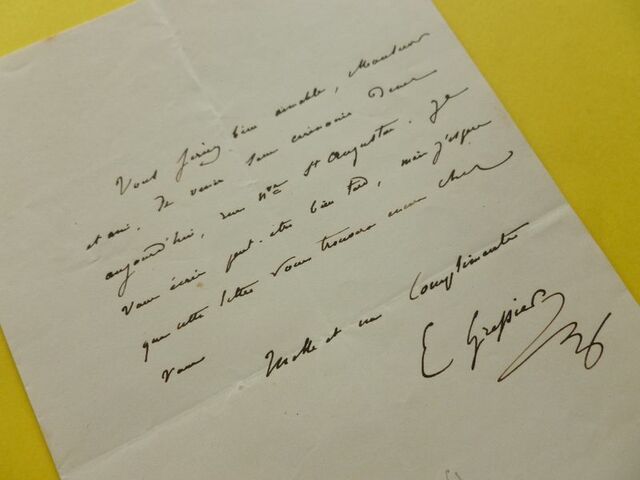 Vous seriez bien aimable, Monsieur
et ami, de venir sans cérémonie diner
aujourd'hui, rue Nve St Augustin. Je
vous écris peut-etre bien tard, mais j'espere
que cette lettre vous trouvera encore chez
vous Mille et un Compliments
E Gressier